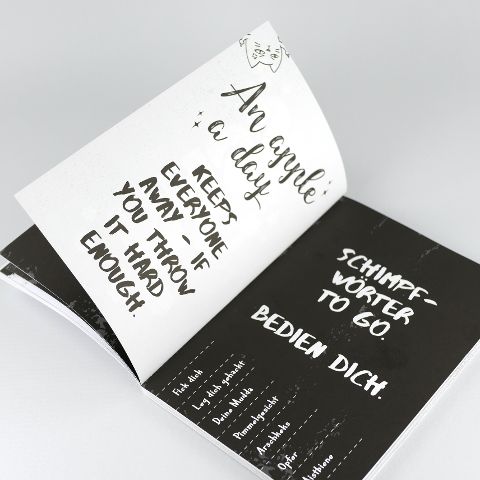 An apple
a day
KEEPS
EVERYONE
AWAY - IF
YOU THROW
IT HARD
ENOUGH.
SCHIMPF-
WÖRTER
TO GO.
BEDIEN DICH.
Fick dich
Leg dich gehackt
Deine Mudda
Pimmelgesicht
Arschkeks
Opfer
Mistbiene